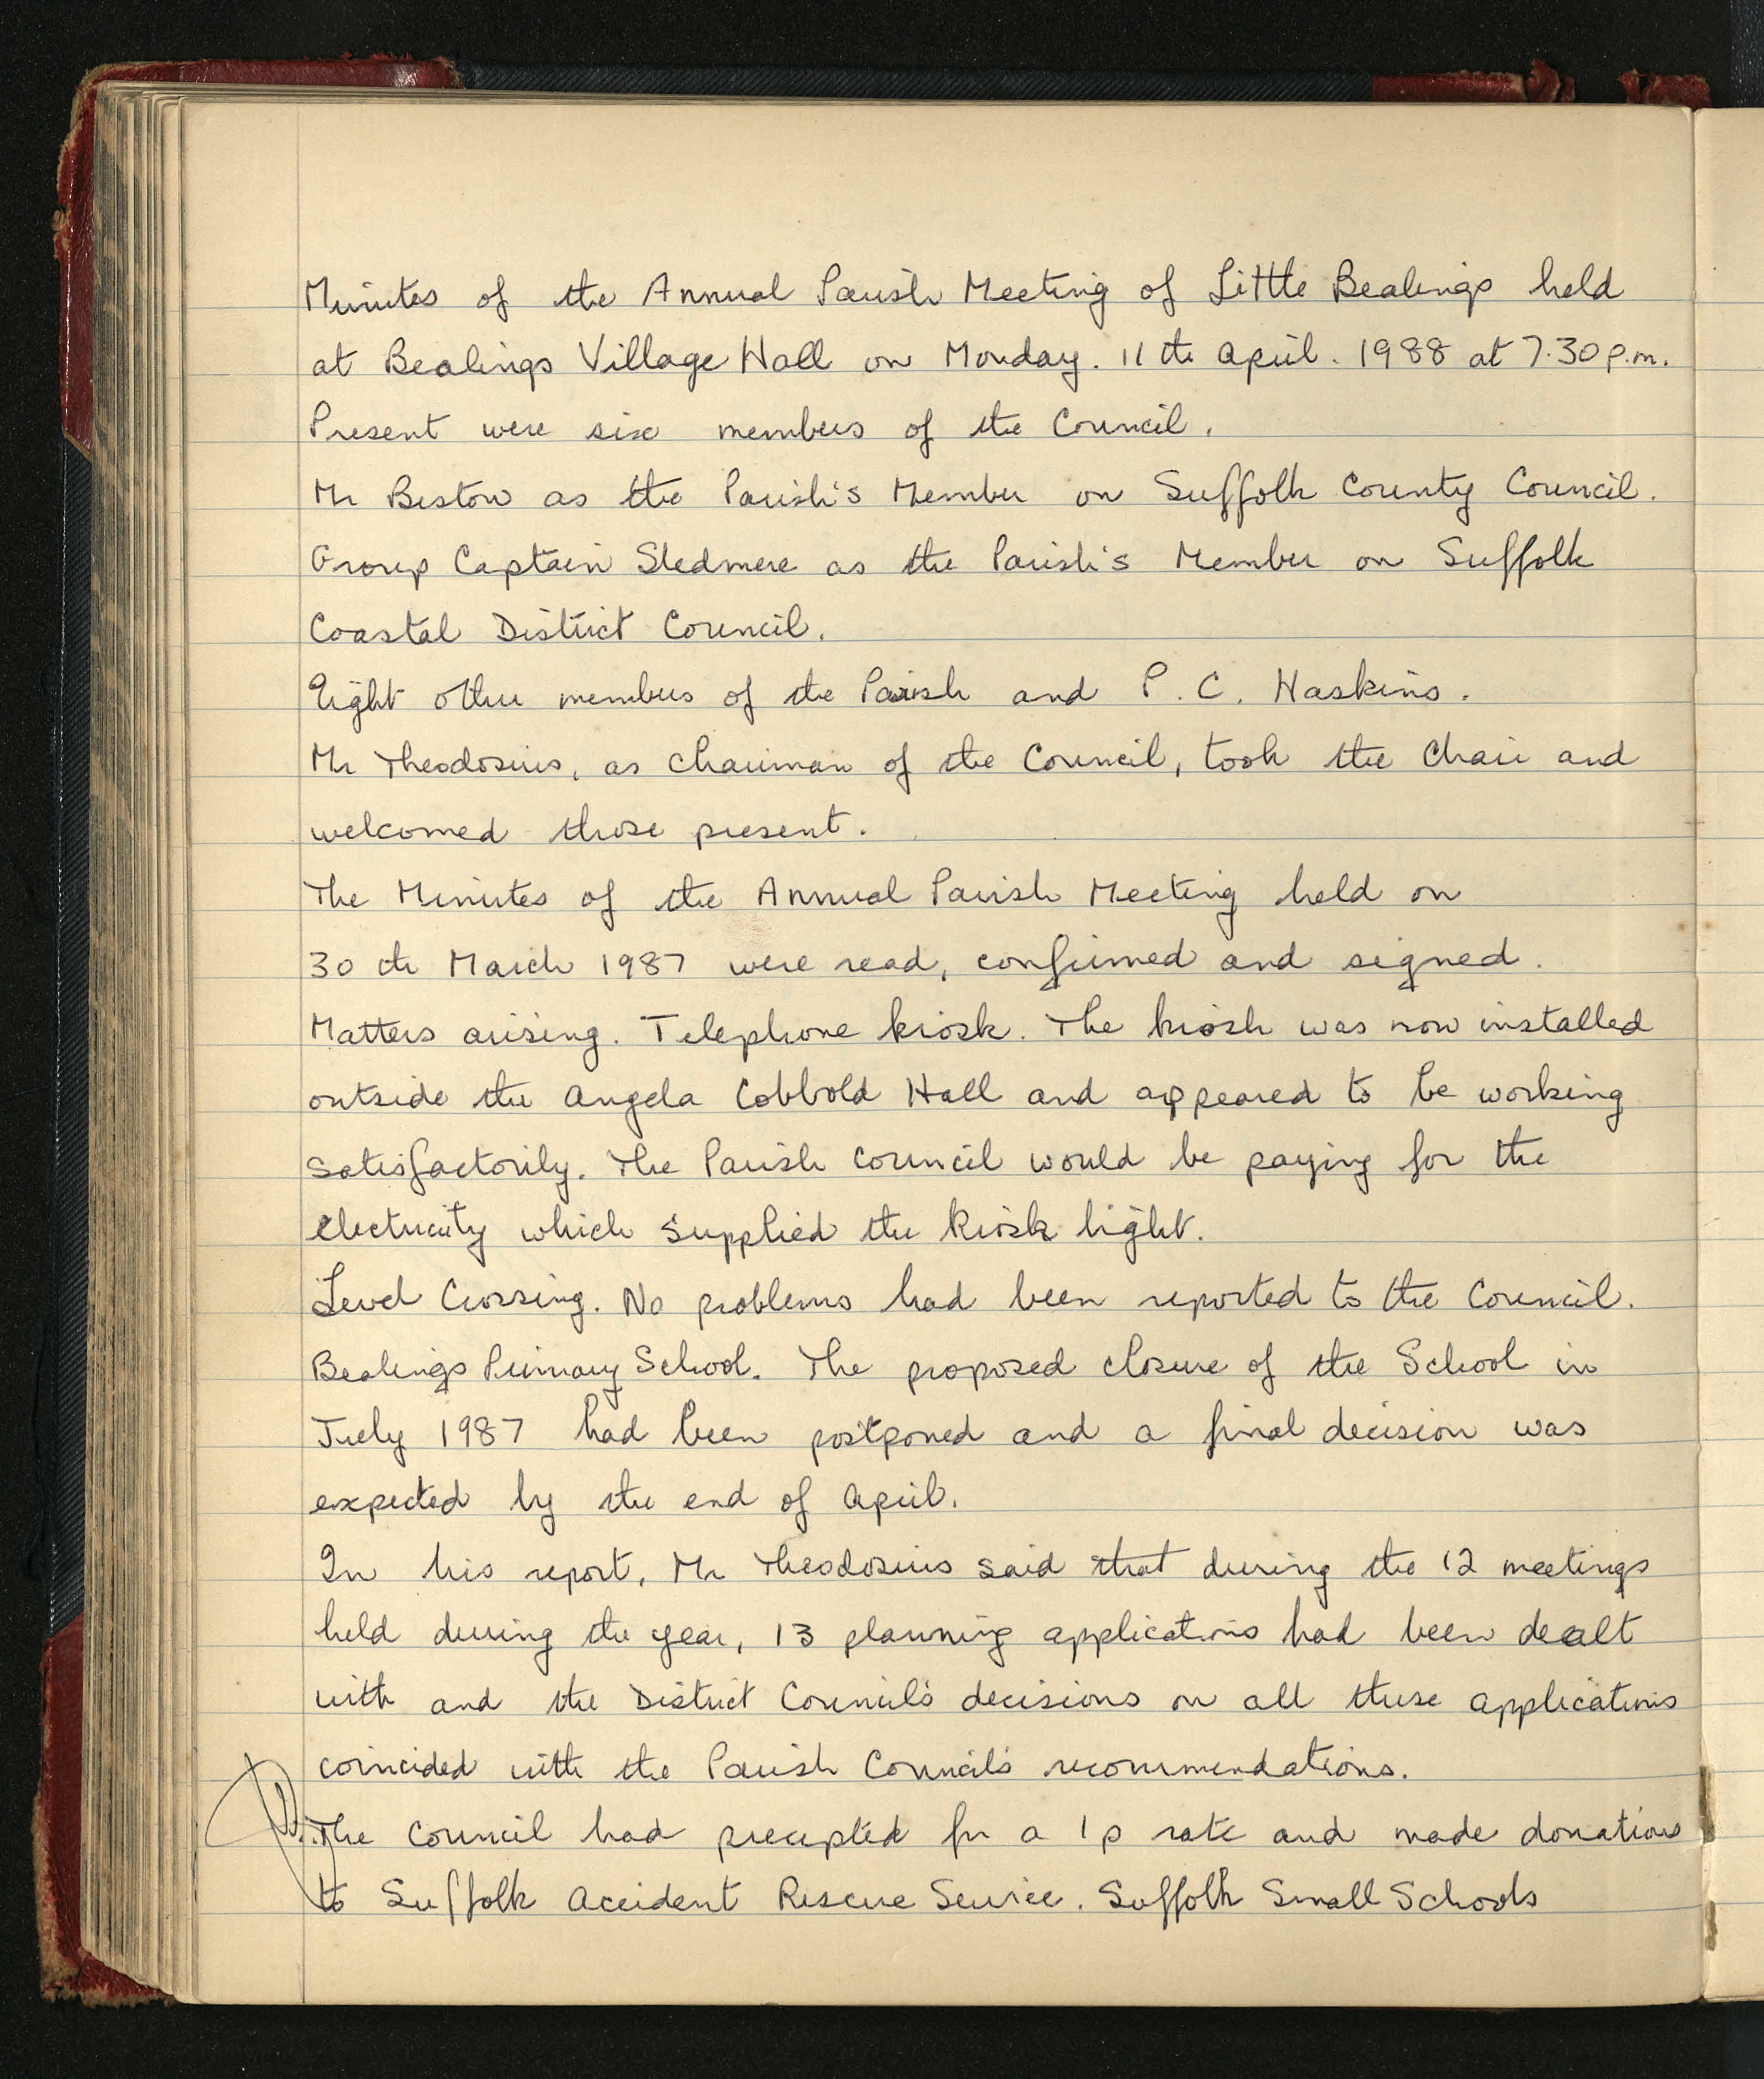 Minutes of the Annual Parish Meeting of Little Bealings held
at Bealings Village Hall on Monday. 11th April. 1988 at 7.30 p.m.
Present were six members of the Council.
Mr Beston as the Parish's Member on Suffolk County Council.
Group Captain Sledmere as the Parish's Member on Suffolk
Coastal District Council.
Eight other members of the Parish and P. C. Haskins.
Mr Theodosius, as Chairman of the Council, took the Chair and
welcomed those present.
The Minutes of the Annual Parish Meeting held on
30th March 1987 were read, confirmed and signed.
Matters arising. Telephone kiosk. The kiosk was now installed
outside the Angela Cobbold Hall and appeared to be working
satisfactorily. The Parish Council would be paying for the
electricity which supplied the kiosk light.
Level Crossing. No problems had been reported to the Council.
Bealings Primary School. The proposed closure of the School in
July 1987 had been postponed and a final decision was
expected by the end of April.
In his report, Mr Theodosius said that during the 12 meetings
held during the year, 13 planning applications had been dealt
with and the District Council's decisions on all these applications
coincided with the Parish Council's recommendations.
The Council had precepted for a 1p rate and made donations
to Suffolk Accident Rescue Service. Suffolk Small Schools